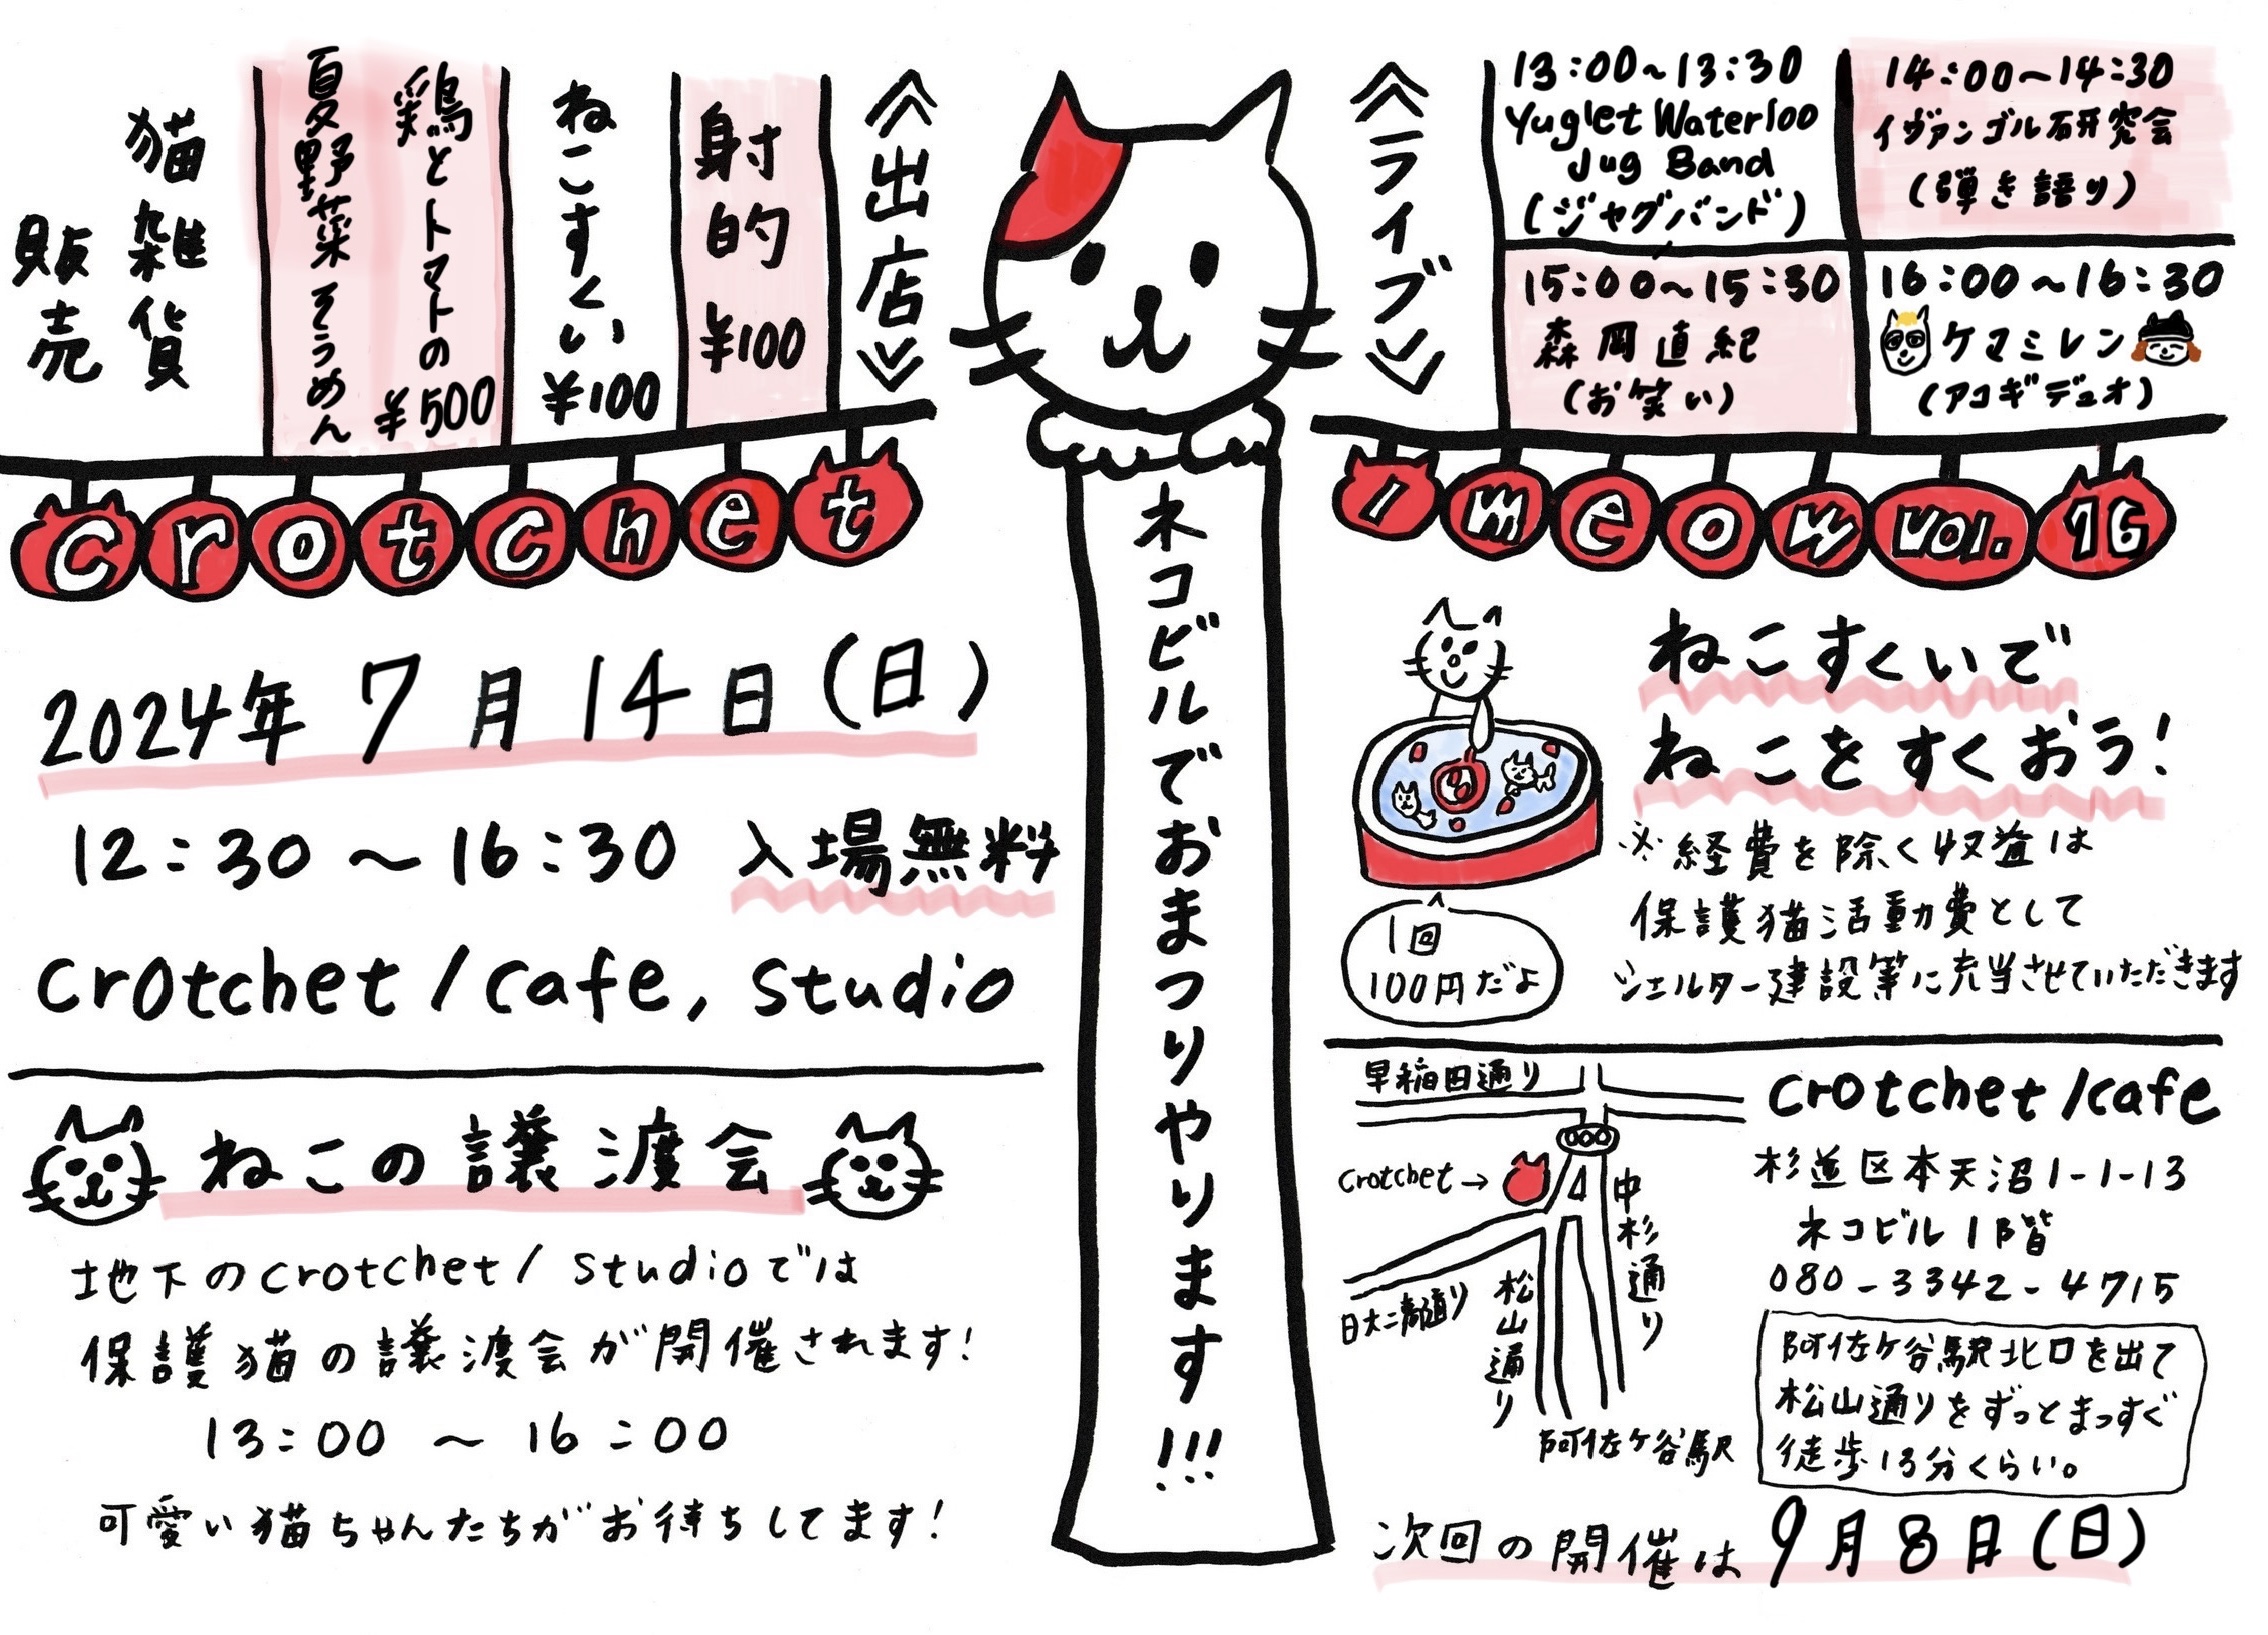 《出店》
射的 ¥100
ねこすくい ¥100
鶏とトマトの
夏野菜そうめん
¥500
猫雑貨
販売
《ライブ》
13:00~13:30
Yuglet Waterloo
Jug Band
(ジャグバンド)
14:00~14:30
イヴァンゴル研究会
(弾き語り)
15:00~15:30
森岡直紀
(お笑い)
16:00~16:30
ケマミレン
(アコギデュオ)
crotchet
/meow vol.16
ネコビルでおまつりやります!!!
2024年 7月14日(日)
12:30~16:30 入場無料
crotchet/cafe, studio
ねこの譲渡会
地下のcrotchet/studioでは
保護猫の譲渡会が開催されます!
13:00 ~ 16:00
可愛い猫ちゃんたちがお待ちしてます!
ねこすくいで
ねこをすくおう!
※経費を除く収益は
保護猫活動費として
シェルター建設等に充当させていただきます
1回
100円だよ
早稲田通り
crotchet→
中杉通り
日大二高通り
松山通り
阿佐ケ谷駅
crotchet/cafe
杉並区本天沼1-1-13
ネコビル1階
080-3342-4715
阿佐ケ谷駅北口を出て
松山通りをずっとまっすぐ
徒歩13分くらい。
次回の開催は9月8日(日)